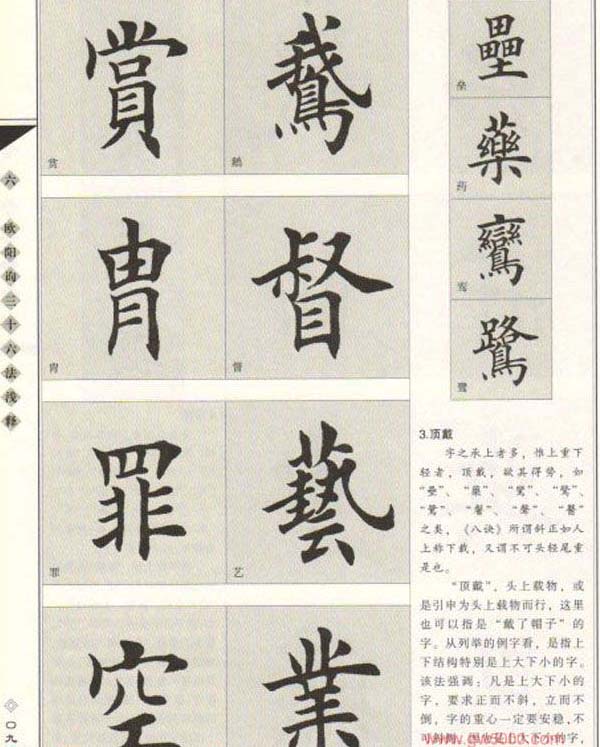 賞 鵝
鹅
壘
垒
藥
药
鸞
鸾
鷺
鹭
胄 督
胄 督
罪 藝
罪 艺
空 業
六 欧阳的三十六法浅释
〇九
3.顶戴
字之承上者多，惟上重下
轻者，顶戴，欲其得势，如
“壘”、“藥”、“鸞”、“驚”、
“鷺”、“髻”、“聲”、“醫”
之类，《八诀》所谓斜正如人
上称下载，又谓不可头轻尾重
是也。
“顶戴”，头上载物，或
是引申为头上载物而行，这里
也可以指是“戴了帽子”的
字。从列举的例字看，是指上
下结构特别是上大下小的字。
该法强调：凡是上大下小的
字，要求正而不斜，立而不
倒，字的重心一定要安稳，不